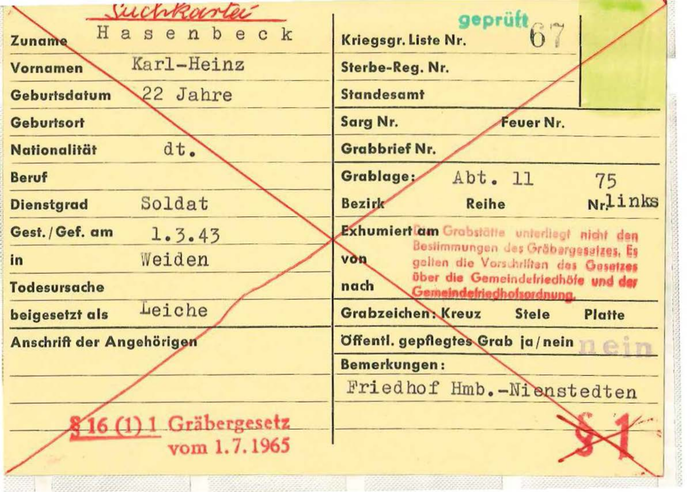 Suchkartei
Zuname Hasenbeck
Vornamen Karl-Heinz
Geburtsdatum 22 Jahre
Geburtsort
Nationalität dt.
Beruf
Dienstgrad Soldat
Gest./Gef. am 1.3.43
in Weiden
Todesursache
beigesetzt als Leiche
Anschrift der Angehörigen
§ 16 (1) 1 Gräbergesetz
vom 1.7.1965
geprüft
Kriegsgr. Liste Nr. 67
Sterbe-Reg. Nr.
Standesamt
Sarg Nr. Feuer Nr.
Grabbrief Nr.
Grablage: Abt. 11 75
Bezirk Reihe Nr. links
Exhumiert am
von
nach
Die Grabstätte unterliegt nicht den
Bestimmungen des Gräbergesetzes. Es
gelten die Vorschriften des Gesetzes
über die Gemeindefriedhöfe und der
Gemeindefriedhofsordnung.
Grabzeichen: Kreuz Stele Platte
Öffentl. gepflegtes Grab ja/nein nein
Bemerkungen:
Friedhof Hmb.-Nienstedten
§ 1